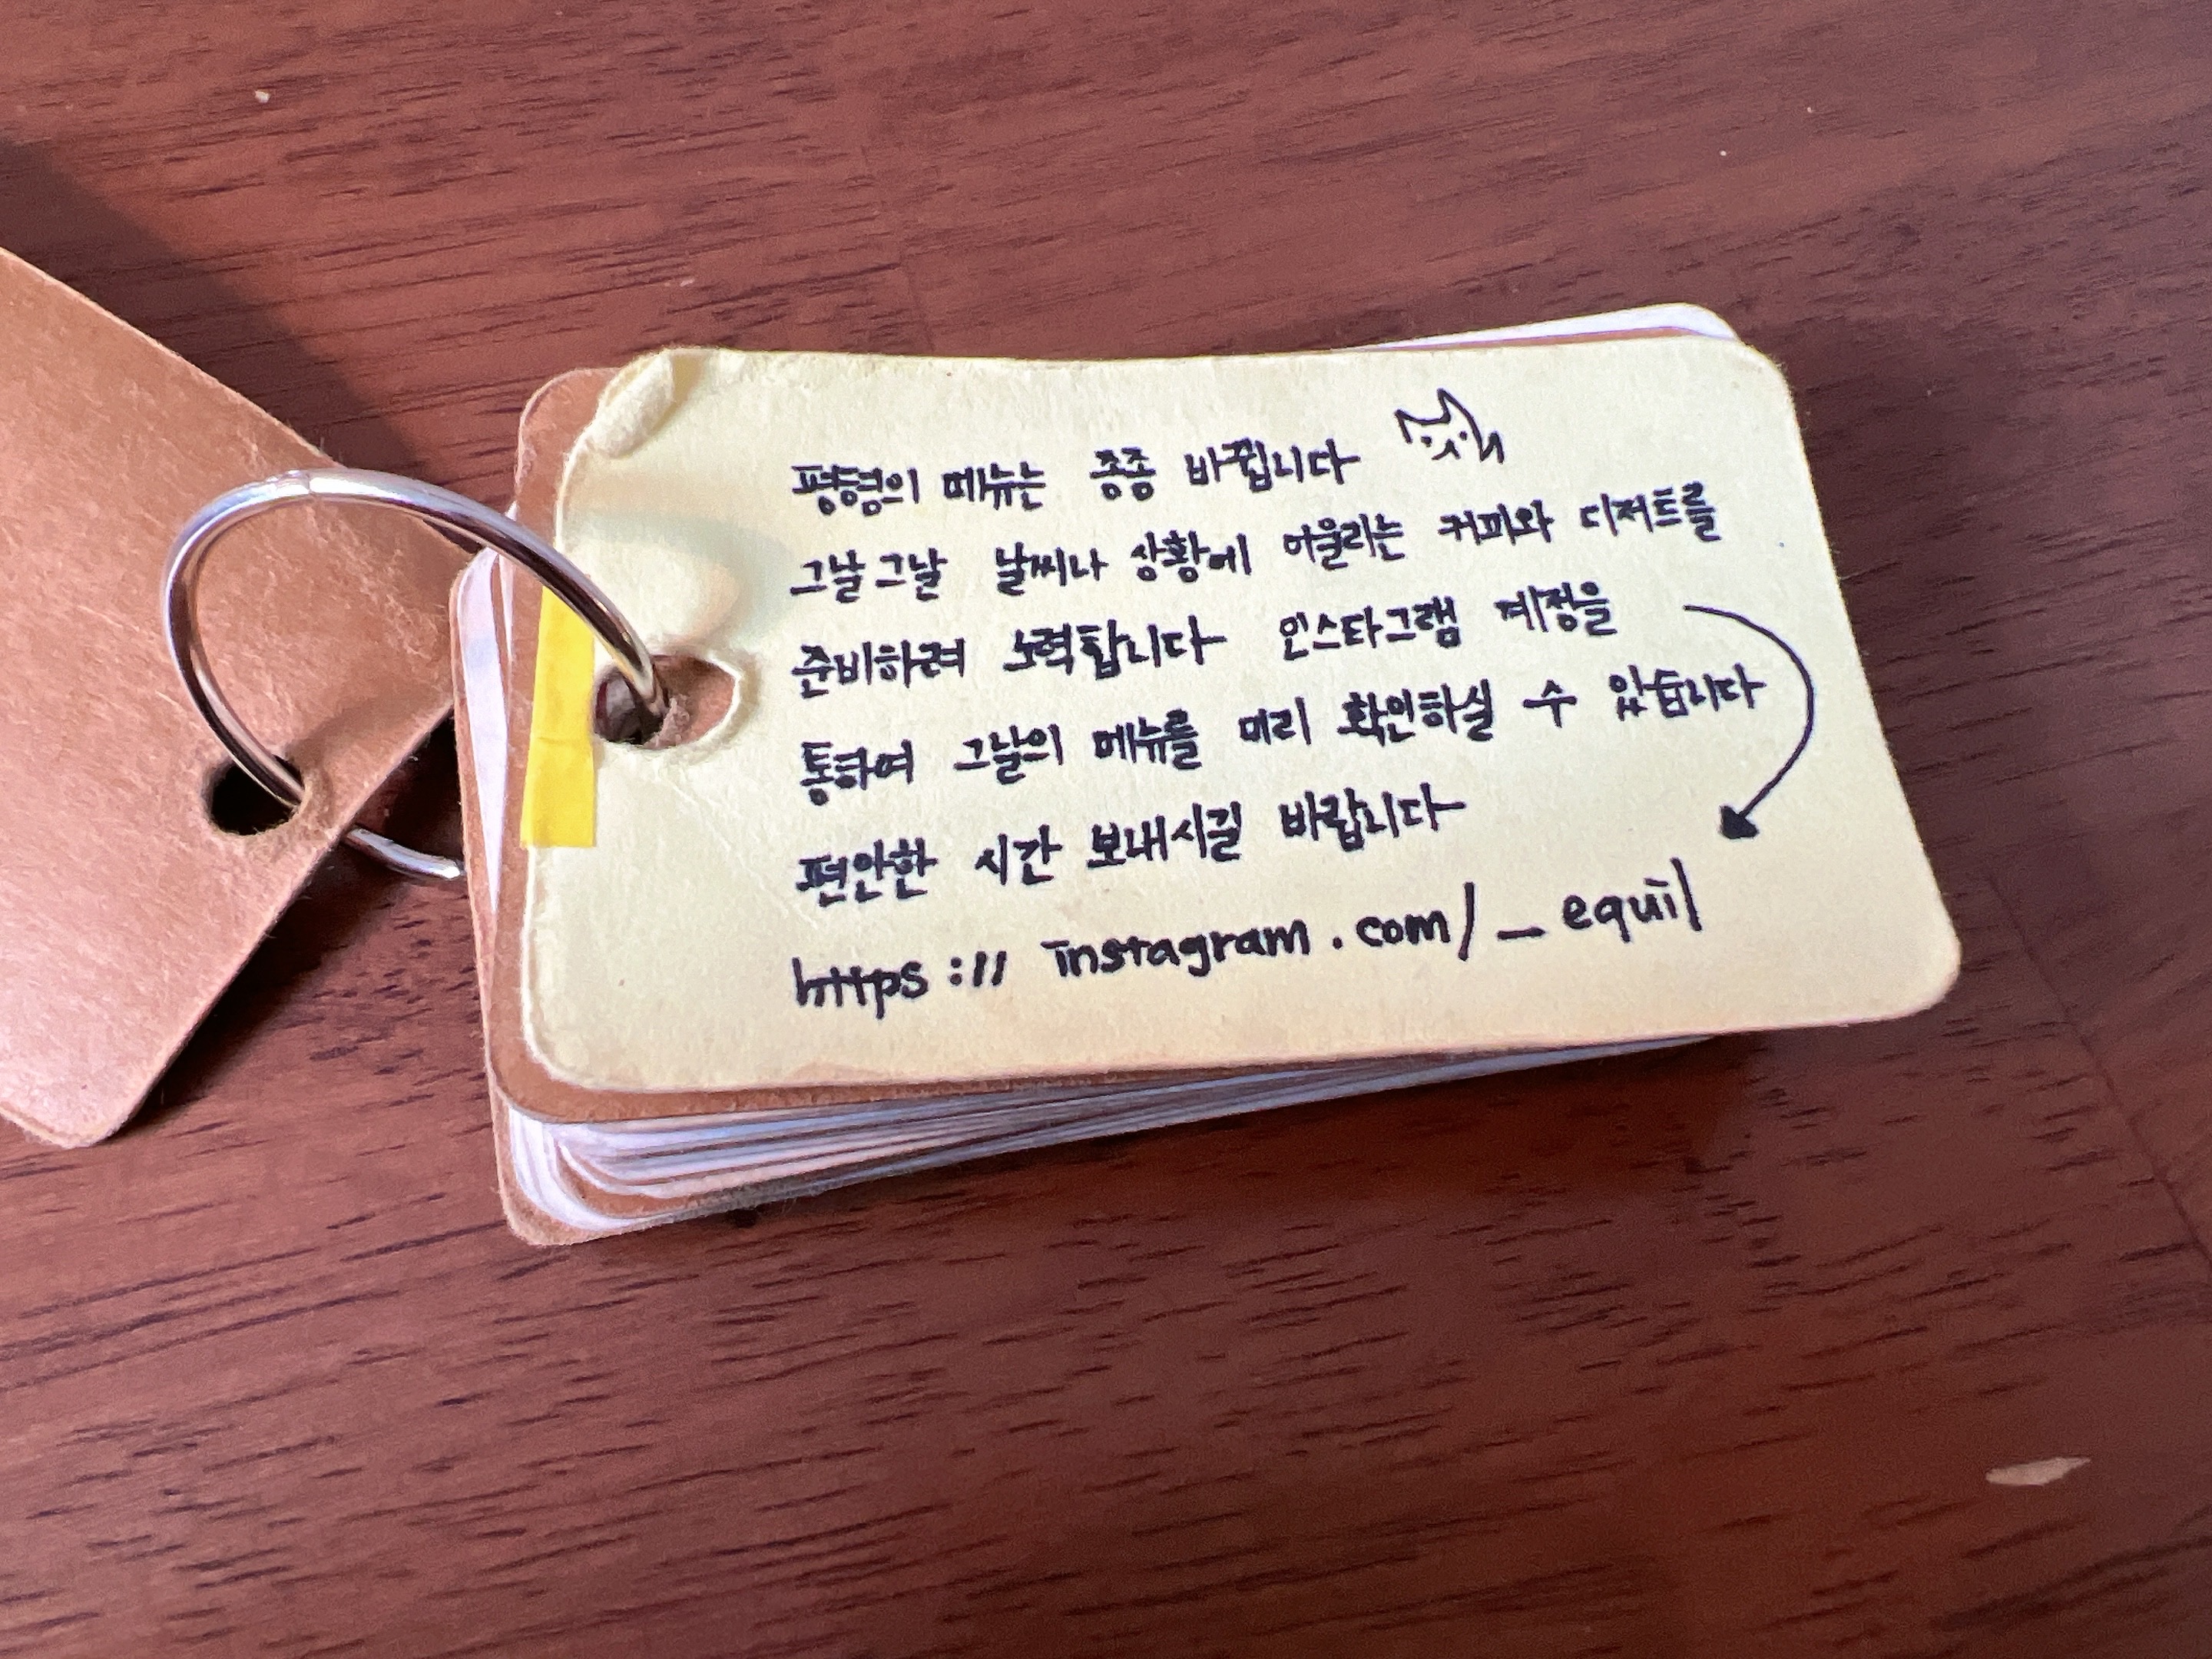 평형의 메뉴는 종종 바뀝니다
그날그날 날씨나 상황에 어울리는 커피와 디저트를
준비하려 노력합니다 인스타그램 계정을
통하여 그날의 메뉴를 미리 확인하실 수 있습니다
편안한 시간 보내시길 바랍니다
https://instagram.com/_equil